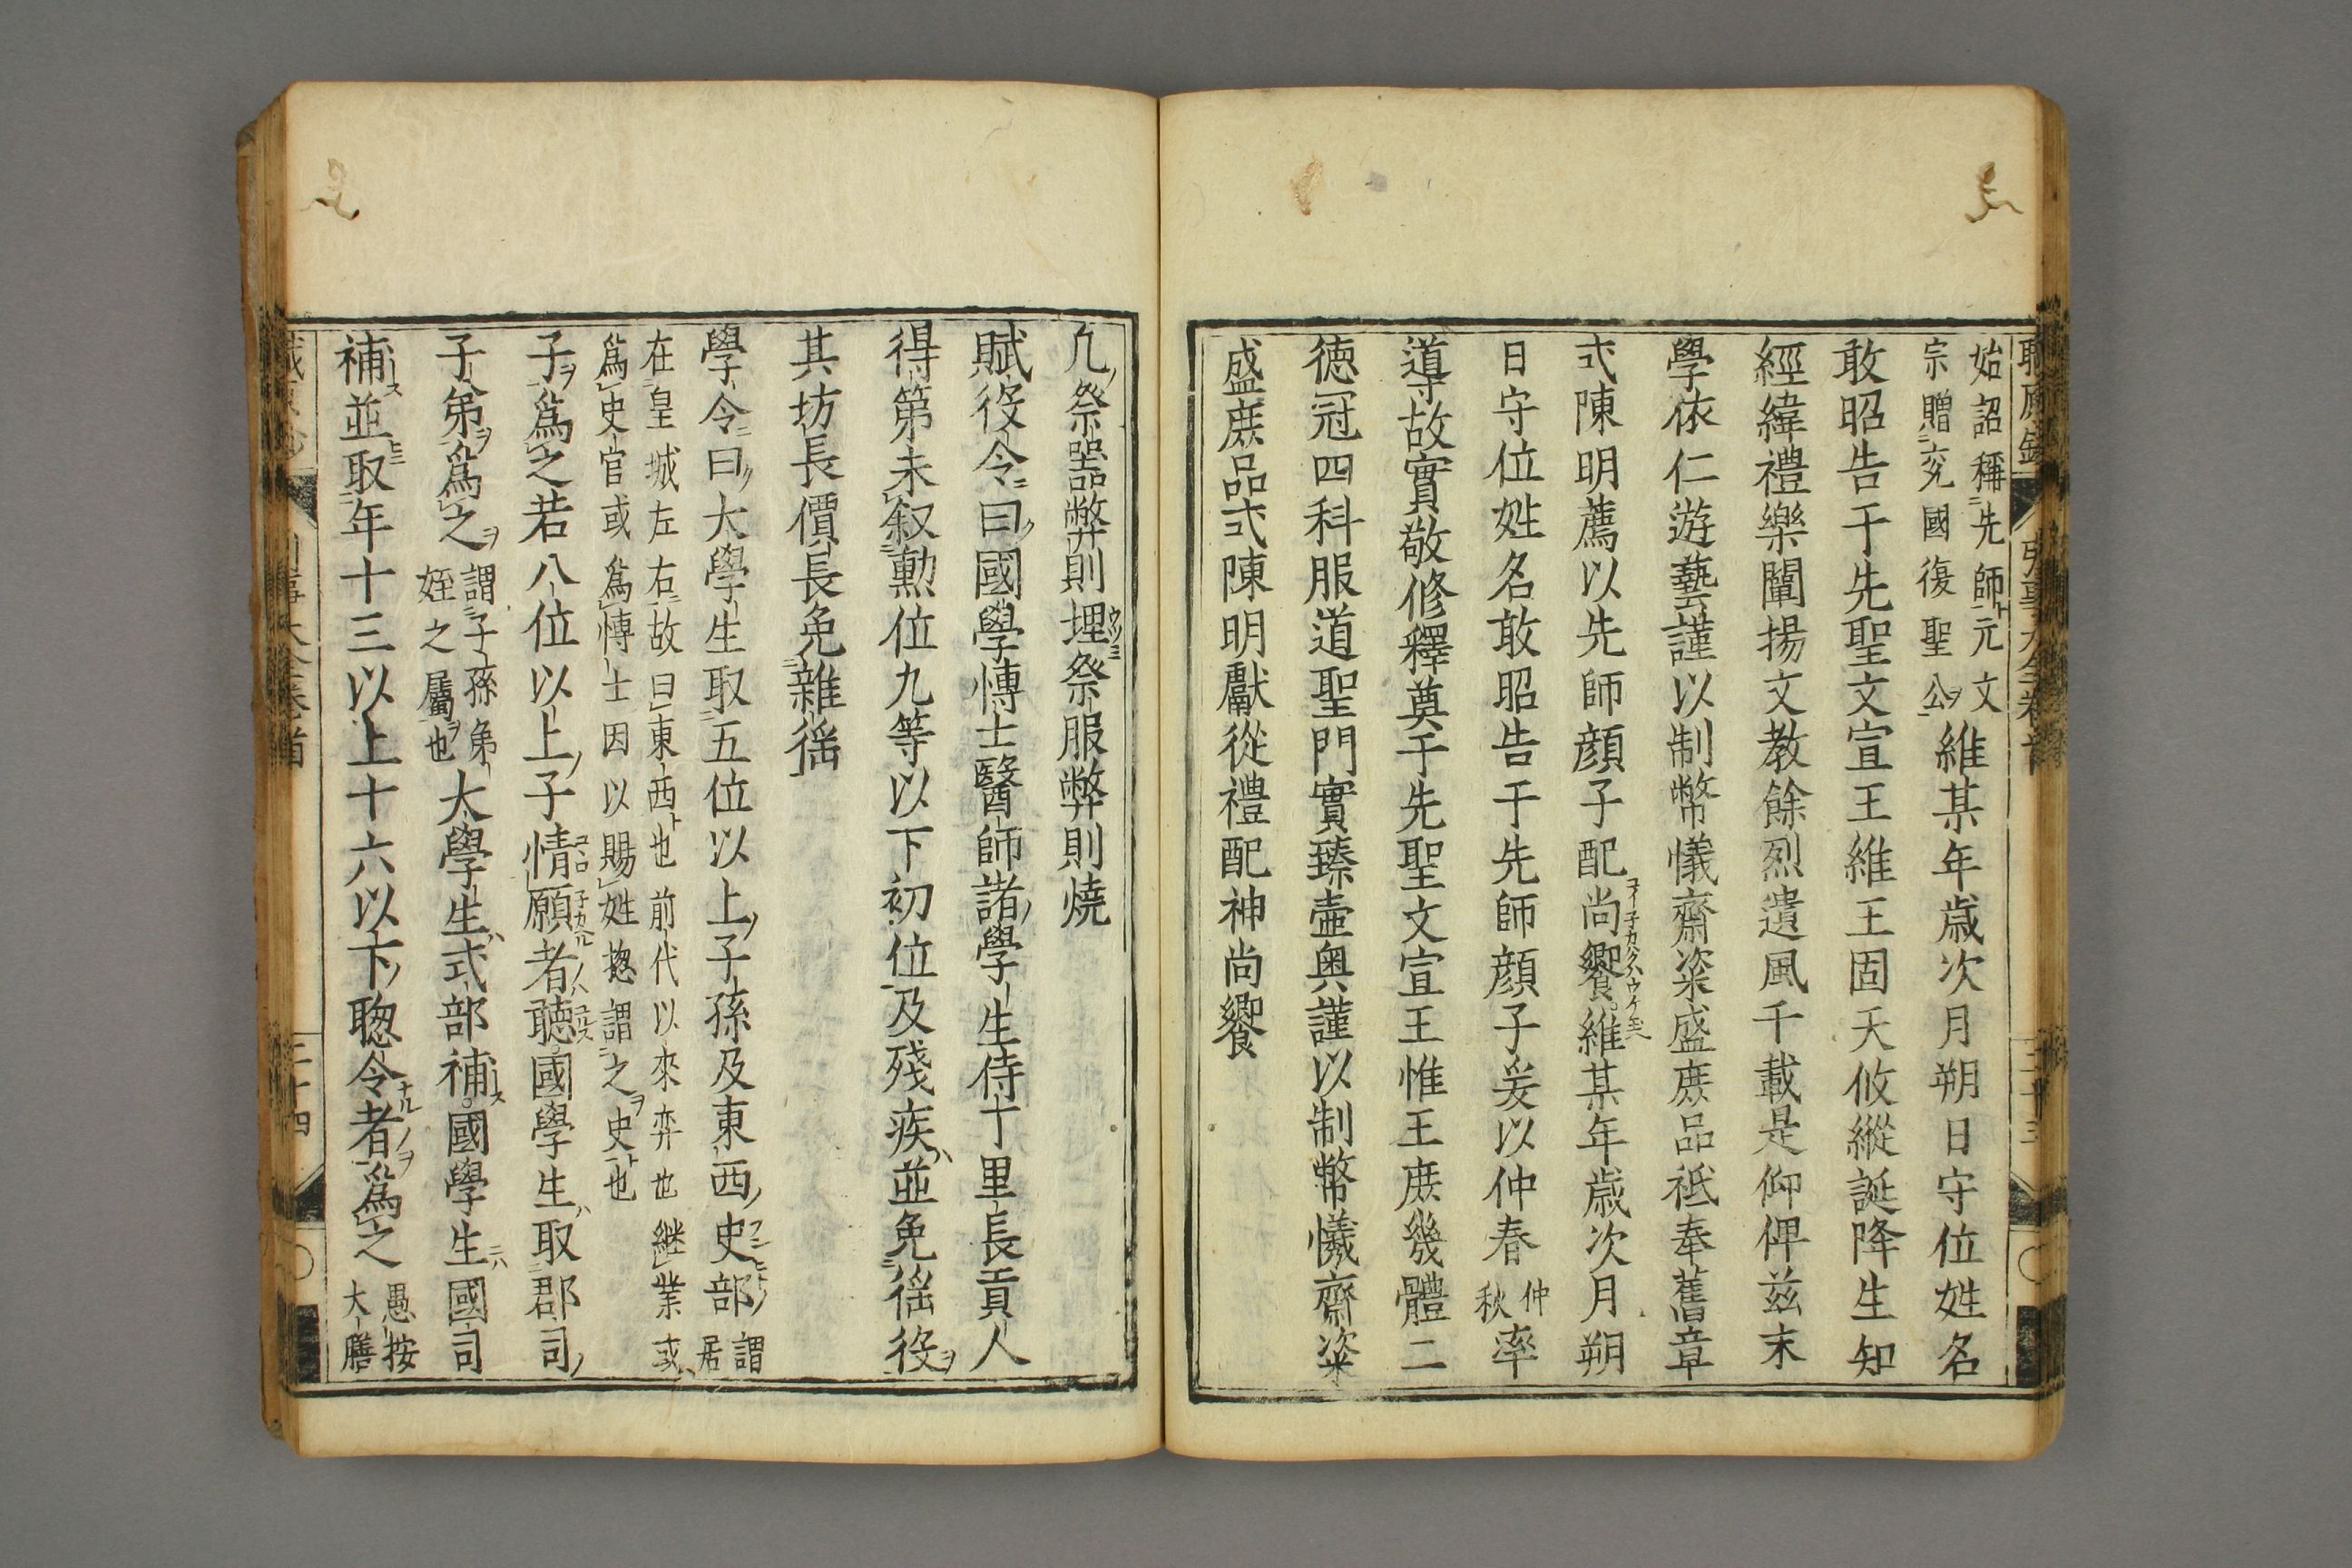 始詔稱先師元文
宗贈兗國復聖公
維某年歳次月朔日守位姓名
敢昭告于先聖文宣王維王固天攸縱誕降生知
經緯禮樂闡揚文教餘烈遺風千載是仰俾茲末
學依仁遊藝謹以制幣犧齋粢盛庶品祗奉舊章
式陳明薦以先師顔子配尚饗維某年歳次月朔
日守位姓名敢昭告于先師顔子爰以仲春仲秋率
導故實敬修釋奠于先聖文宣王惟王庶幾體二
徳冠四科服道聖門實臻壺奥謹以制幣犧齋粢
盛庶品式陳明獻從禮配神尚饗
凡祭器弊則埋祭服弊則燒
賦役令曰國學博士醫師諸學生侍十里長貢人
得第未叙勲位九等以下初位及殘疾並免徭役
其坊長價長免雜徭
學令曰大學生取五位以上子孫及東西史部謂居
在皇城左右故曰東西也前代以來奕也継業或
爲史官或爲博士因以賜姓摠謂之史也
子爲之若八位以上子情願者聽國學生取郡司
子弟爲之謂子孫弟姪之屬也大學生式部補國學生國司
補並取年十三以上十六以下聰令者爲之愚按大膳
三十四